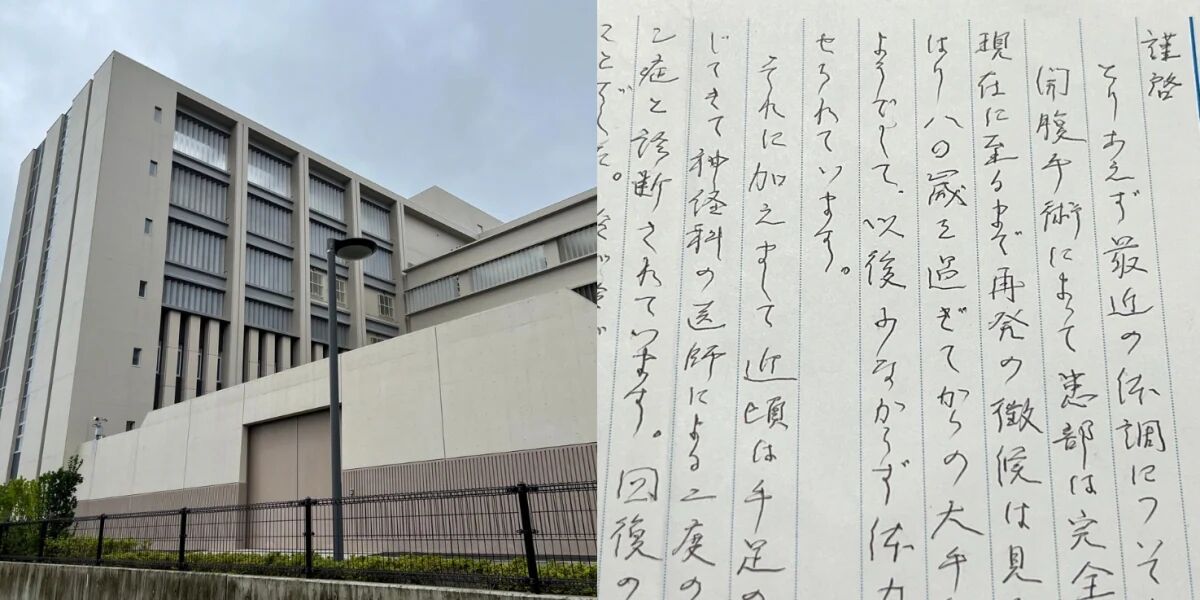 謹啓
とりあえず最近の体調について
開腹手術によって患部は完全
現在に至るまで再発の徴候は見
はり八〇歳を過ぎてからの大手
ようでして、以後少なからず体力
せられています。
それに加えまして近頃は手足の
じてきて神経科の医師による二度の
症と診断されています。回復の
ことでした。